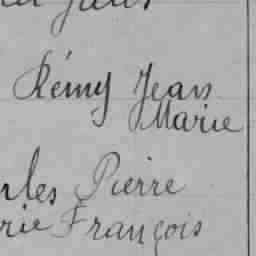 Rémy Jean
Marie
rles Pierre
rie François